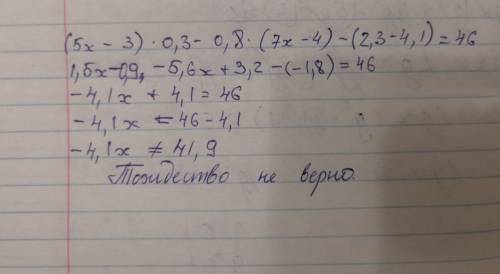 (5x - 3) · 0,3 - 0,8 · (7x - 4) - (2,3 - 4,1) = 46
1,5x - 0,9, - 5,6x + 3,2 - (-1,8) = 46
-4,1x + 4,1 = 46
-4,1x = 46 - 4,1
-4,1x ≠ 41,9
Тождество не верно.